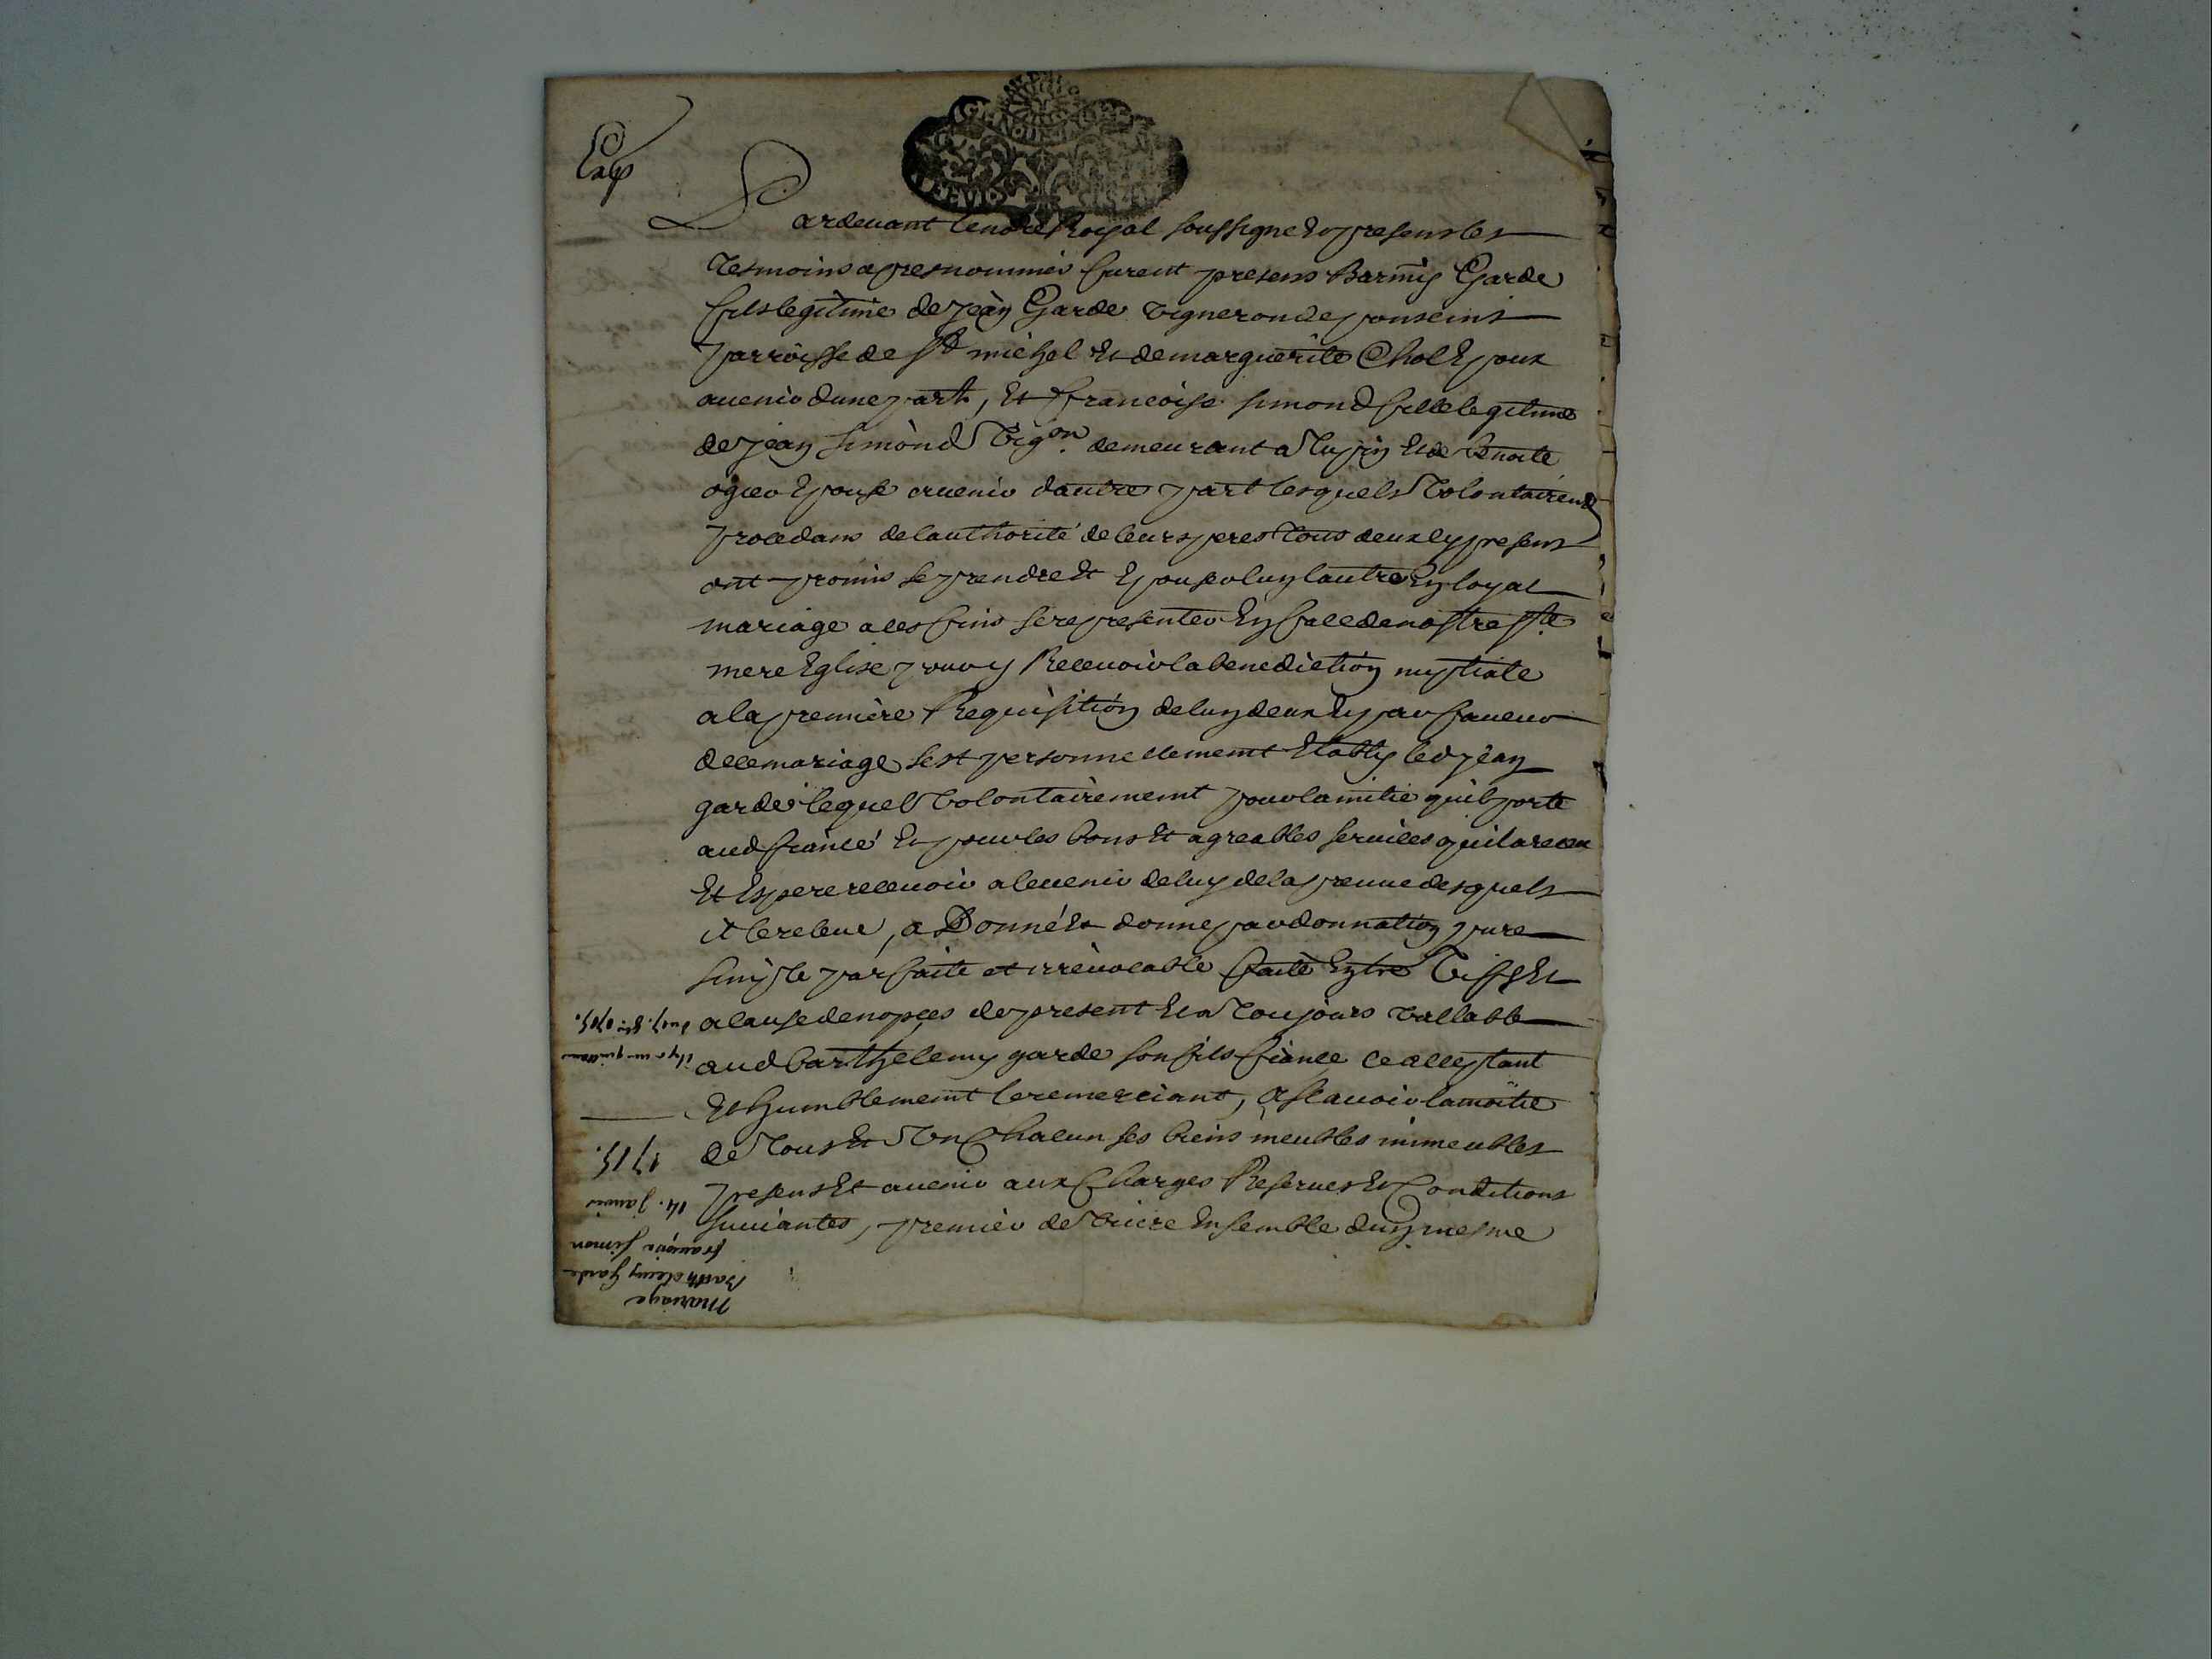 Exp
Pardevant le no.re Royal soussigné Et presens les
tesmoins apresnommés furent presens Barmy Garde
fils legitime de jean Garde vigneron de ponseint
parroisse de St michel Et de marguerite Chol Epoux
avenir dune part, Et francoise simond fille legitime
de jean simond vig.on demeurant a Tupin Et de benoite
ogier Epouse avenir dautre part lesquels volontairemt
procedans de lauthorité de leurs peres tous deux cy presens
ont promis se prendre Et Epouser lun lautre En loyal
mariage a ces fins se representer En face de nostre ste
mere Eglise pour y Recevoir la benediction nuptiale
a la premiere Requisition de lun deux Et par faveur
de ce mariage sest personnellement Etably led jean
garde lequel volontairement pour lamitie quil porte
aud fiancé Et pour les bons Et agreables services quil a receu
Et Espere recevoir a levenir de luy de la preuve desquels
il le releve, a Donné Et donne par donnation pure
simple parfaite et irrevocable faite Entre vifs Et
a cause de nopces de present Et a toujours vallable
aud barthelemy garde son fils fiance ce acceptant
Et humblement le remerciant, a scavoir la moitie
de tous Et un Chacun ses biens meubles immeubles
presens Et avenir aux Charges Reserves Et Conditions
suivantes, premier de vivre Ensemble dun mesme
Mariage
Barthelemy Garde
françoise Simon
14. janvier
1715.
il y a une quittance